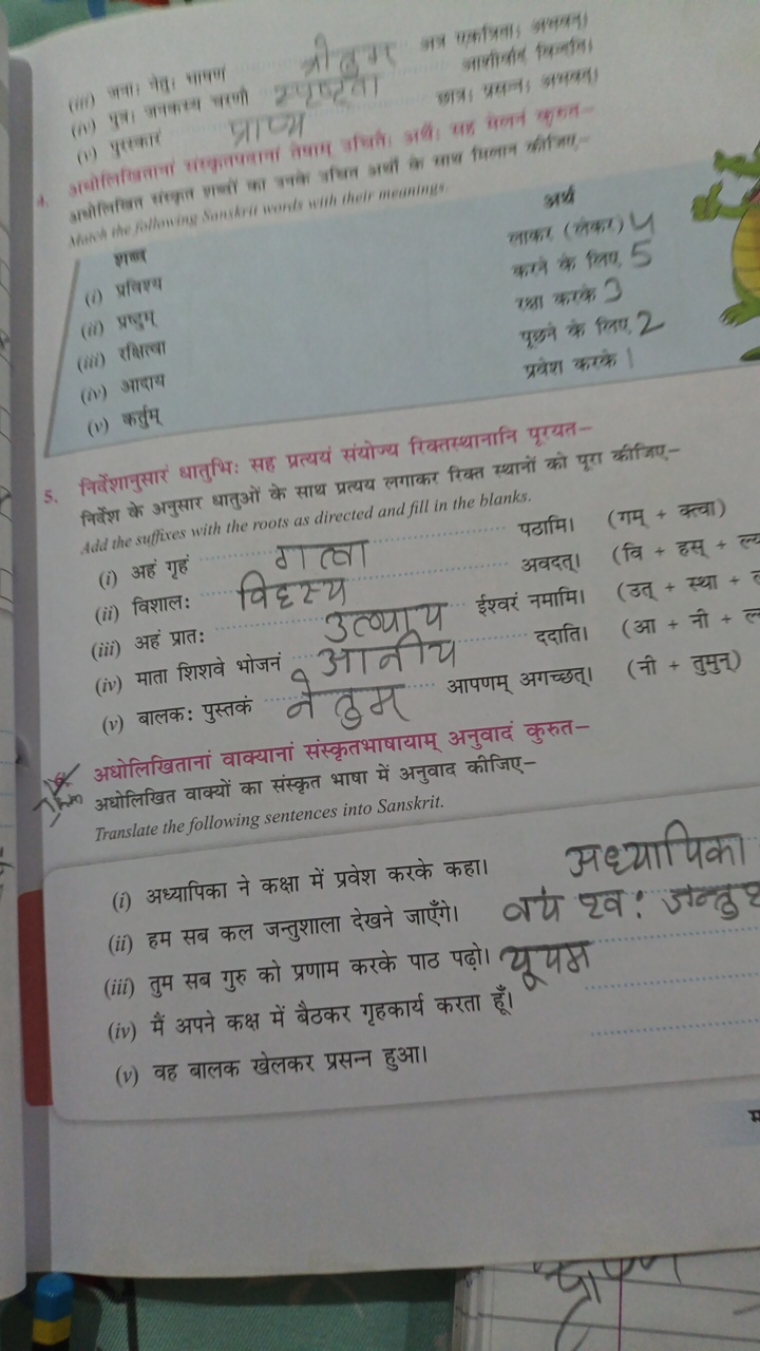 (iii) जनाः नेतुः भाषणं श्रोतुम अत्र एकत्रिताः अभवन्।
(iv) पुत्रः जनकस्य चरणौ स्पृष्ट्वा आशीर्वादं
(v) पुरस्कारं प्राप्य छात्रः प्रसन्नः अभवत्।
4. अधोलिखितानां संस्कृतपदानां तेषाम् उचितैः अर्थैः सह मेलनं कुरुत–
अधोलिखित संस्कृत शब्दों का उनके उचित अर्थों के साथ मिलान कीजिए–
Match the following Sanskrit words with their meanings.
शब्द अर्थ
(i) प्रविश्य लाकर (लेकर) 4
(ii) प्रष्टुम् करने के लिए 5
(iii) रक्षित्वा रक्षा करके 3
(iv) आदाय पूछने के लिए 2
(v) कर्तुम् प्रवेश करके 1
5. निर्देशानुसारं धातुभिः सह प्रत्ययं संयोज्य रिक्तस्थानानि पूरयत–
निर्देश के अनुसार धातुओं के साथ प्रत्यय लगाकर रिक्त स्थानों को पूरा कीजिए–
Add the suffixes with the roots as directed and fill in the blanks.
(i) अहं गृहं गत्वा पठामि। (गम् + क्त्वा)
(ii) विशालः विहस्य अवदत्। (वि + हस् +
(iii) अहं प्रातः उत्थाय ईश्वरं नमामि। (उत् + स्था +
(iv) माता शिशवे भोजनं आनीय ददाति। (आ + नी +
(v) बालकः पुस्तकं नेतुम आपणम् अगच्छत्। (नी + तुमुन्)
अधोलिखितानां वाक्यानां संस्कृतभाषायाम् अनुवादं कुरुत–
अधोलिखित वाक्यों का संस्कृत भाषा में अनुवाद कीजिए–
Translate the following sentences into Sanskrit.
(i) अध्यापिका ने कक्षा में प्रवेश करके कहा। अध्यापिका
(ii) हम सब कल जन्तुशाला देखने जाएँगे। वयं श्वः जन्तुश
(iii) तुम सब गुरु को प्रणाम करके पाठ पढ़ो। यूयम
(iv) मैं अपने कक्ष में बैठकर गृहकार्य करता हूँ।
(v) वह बालक खेलकर प्रसन्न हुआ।